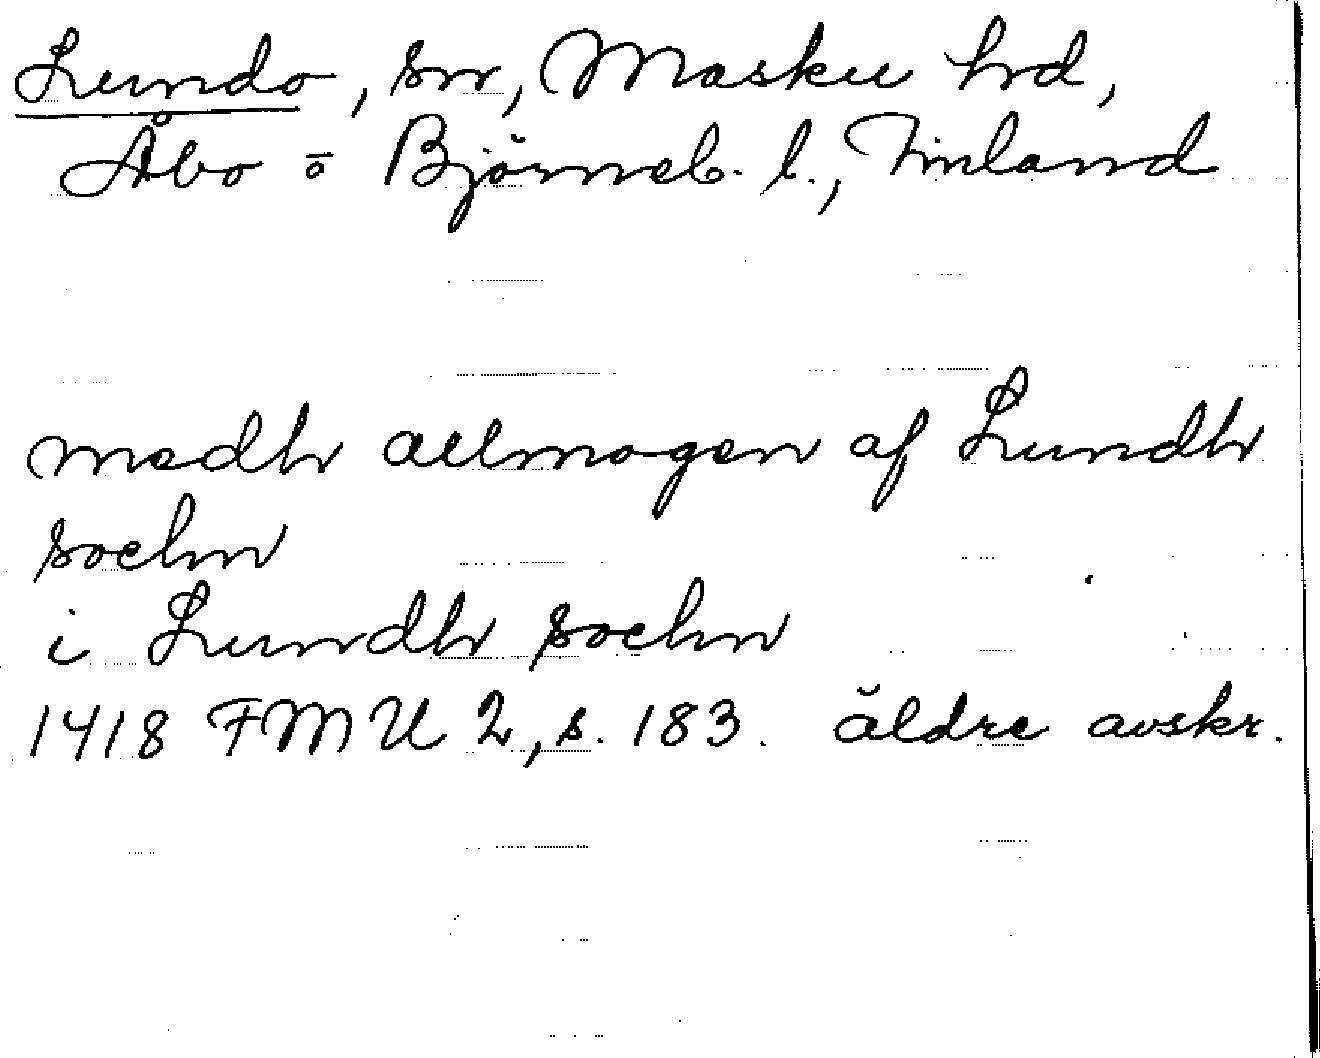 Lundo, sn, Masku hd,
Åbo o Björneb. l., Finland
medh aelmogen af Lundh
sochn
i Lundh sochn
1418 FMU 2, s. 183. äldre avskr.